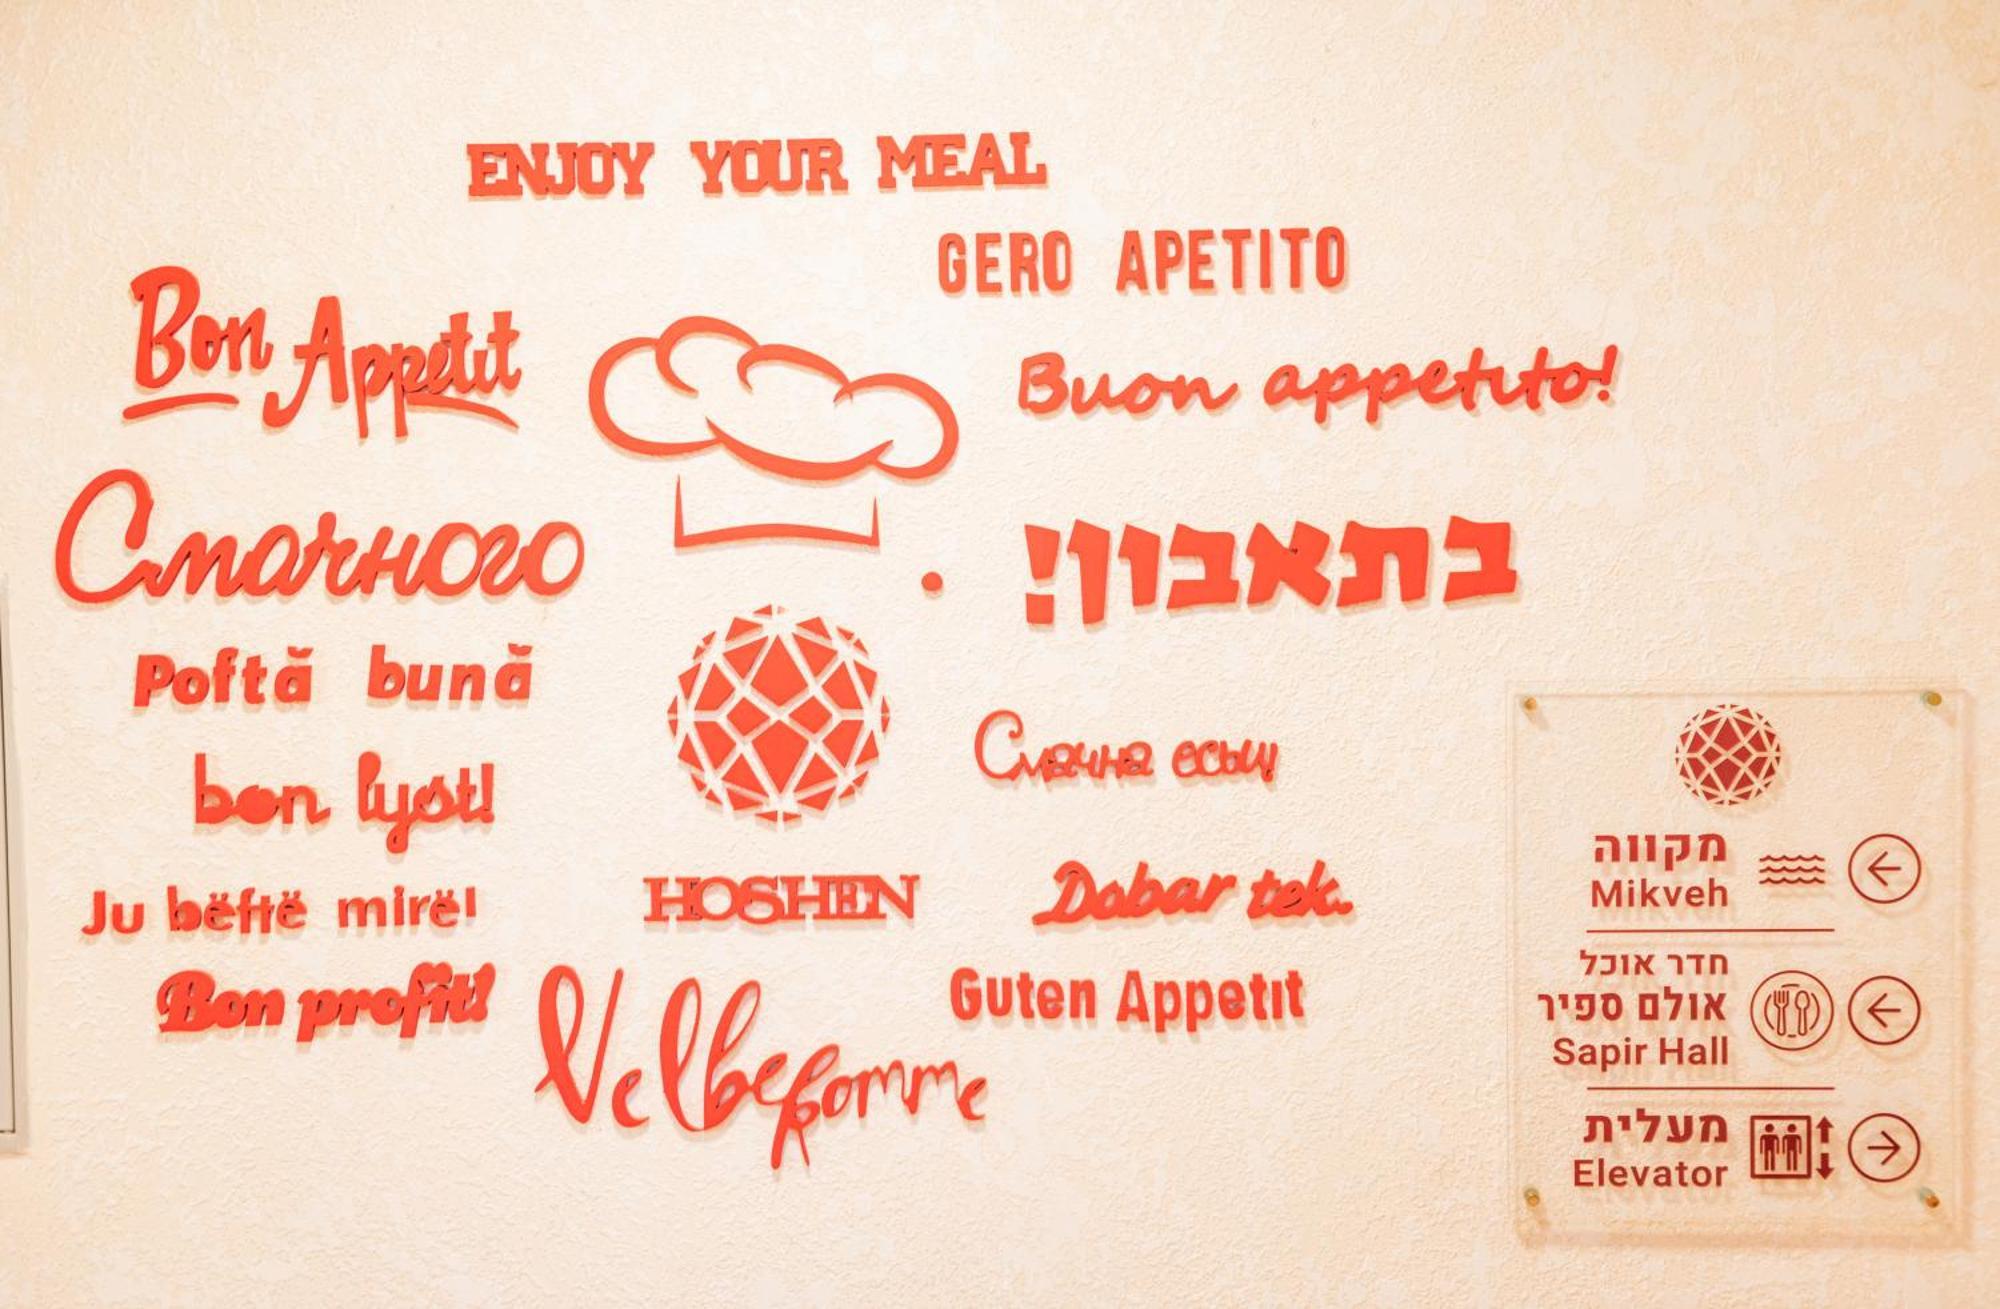 ENJOY YOUR MEAL
GERO APETITO
Bon Appétit
Buon appetito!
Смачного
בתאבון!
Poftă bună
Смачна есьці
bon lyst!
Ju bëftë mirë!
HOSHEN
Dobar tek.
Bon profit!
Velbekomme
Guten Appetit
מקווה
Mikveh
חדר אוכל
אולם ספיר
Sapir Hall
מעלית
Elevator